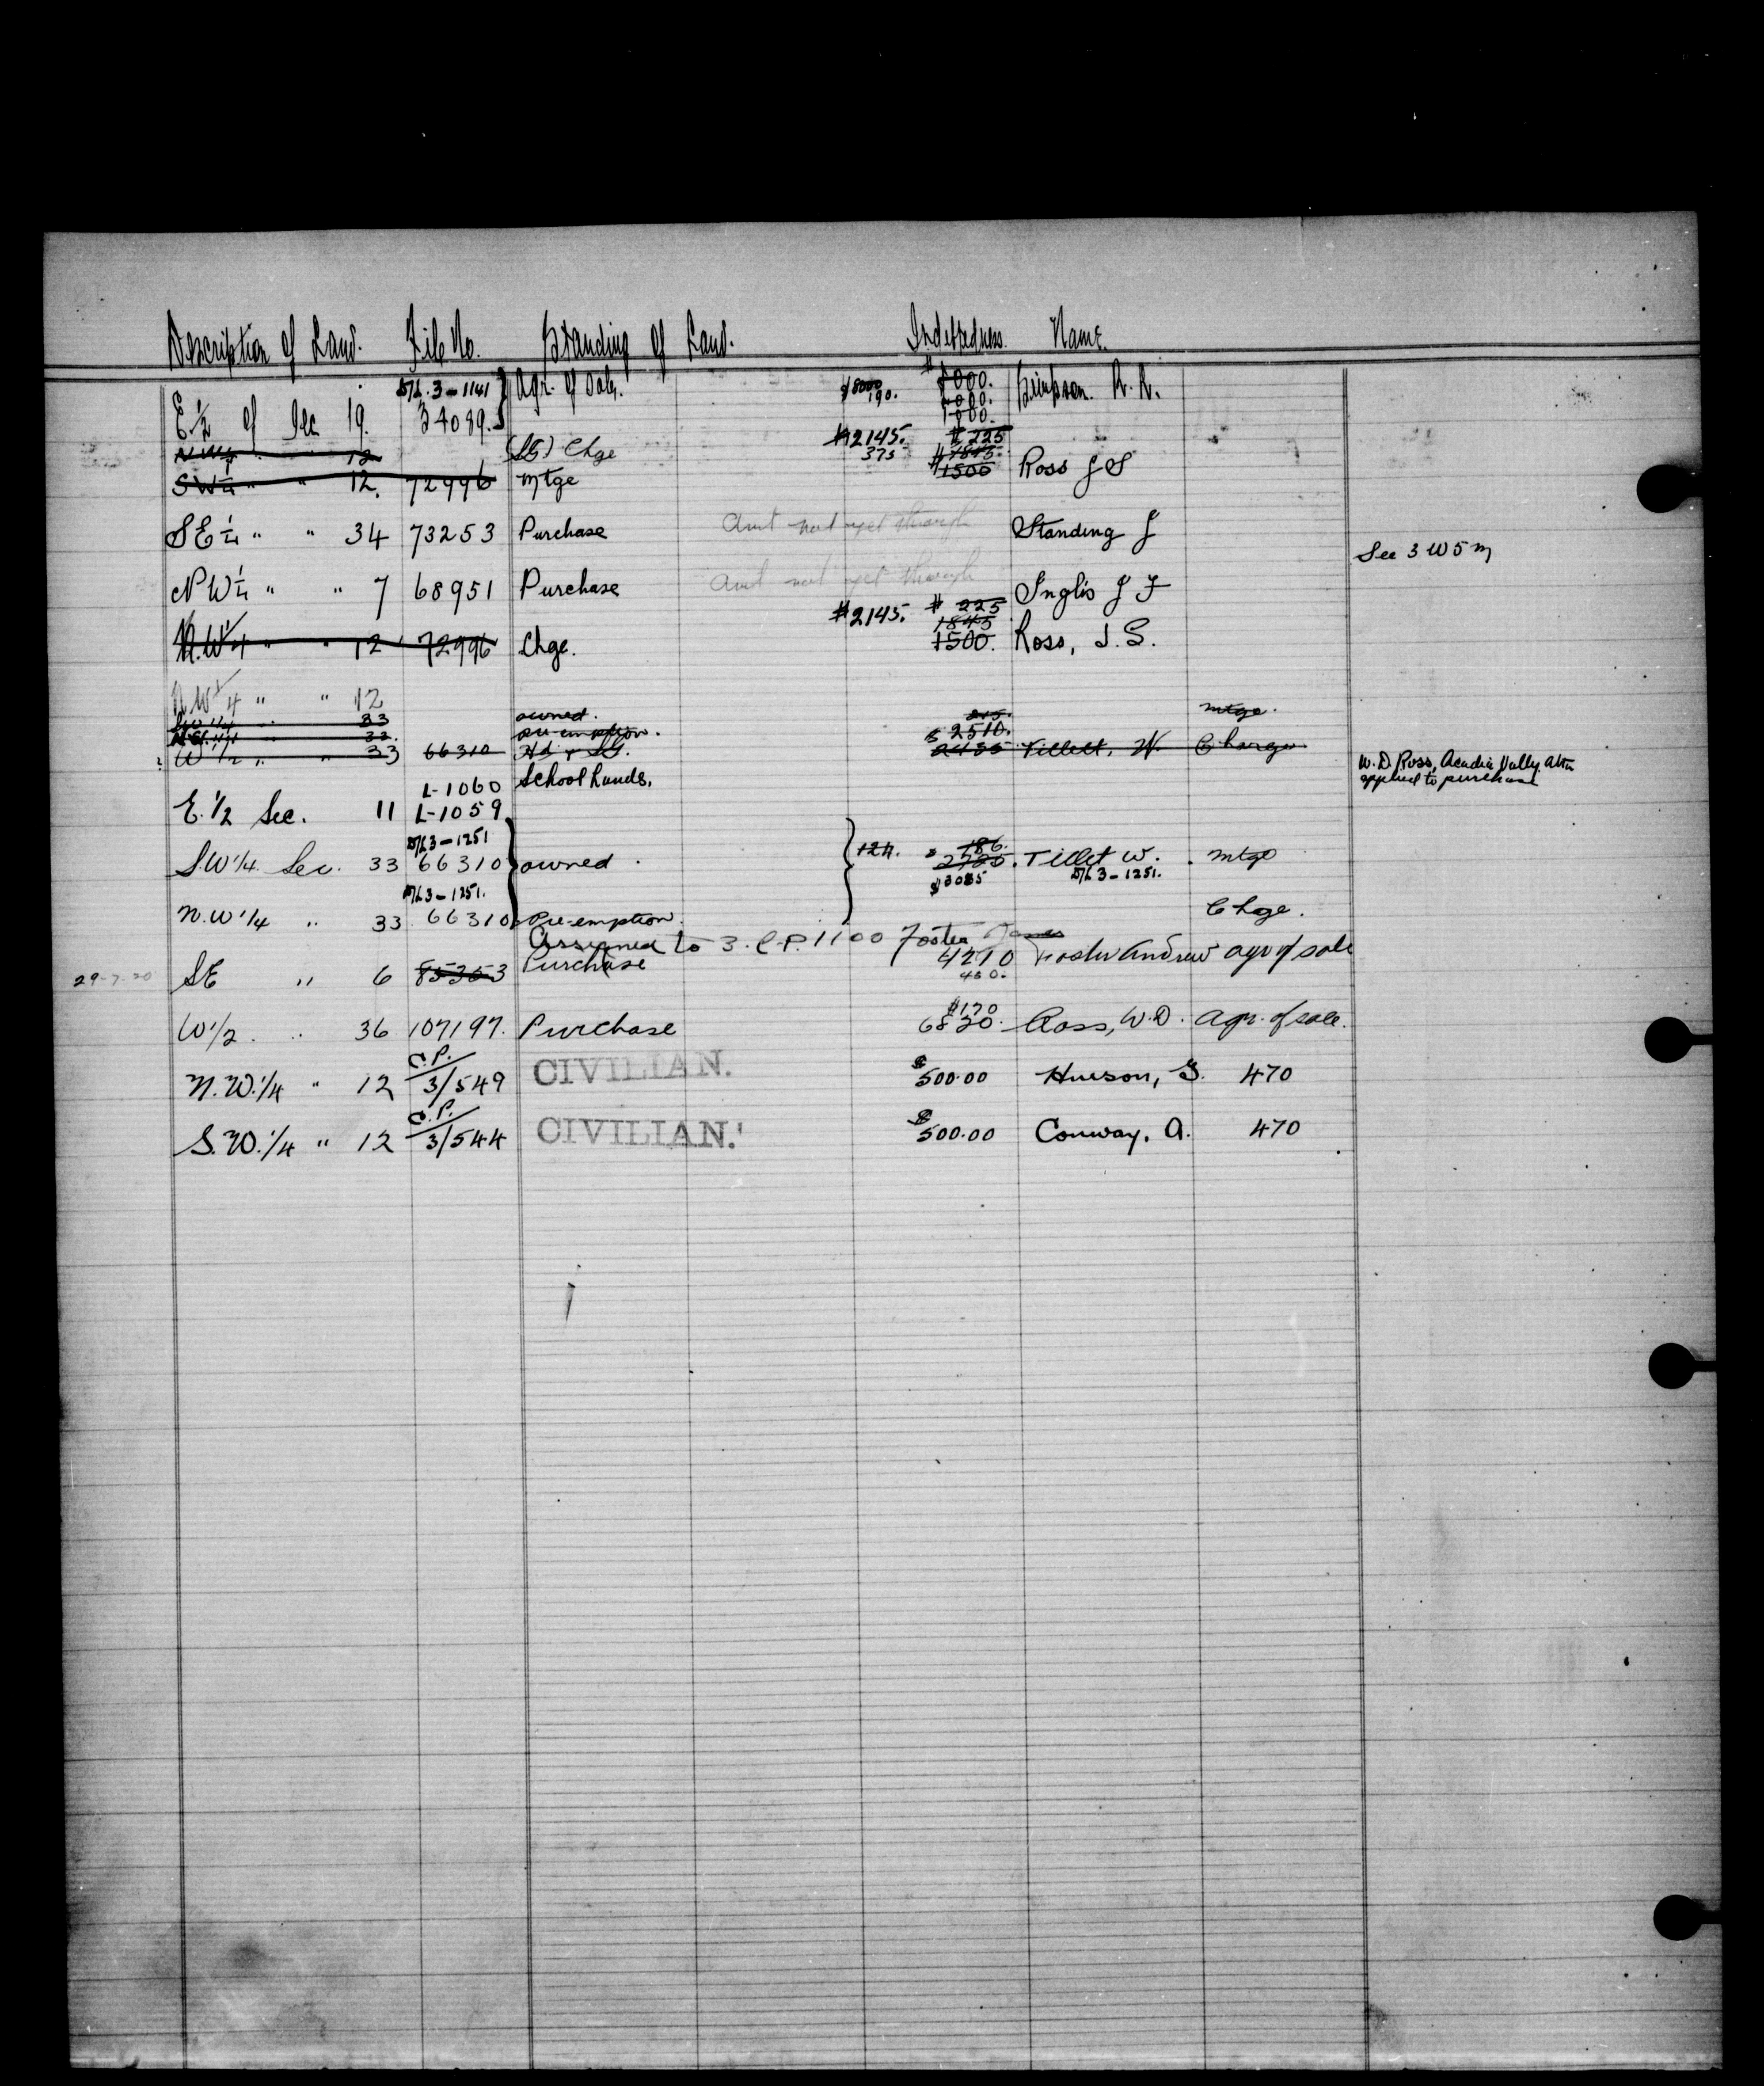 Description of Land. File No. Standing of Land. Indebtedness. Name.
E.½ of Sec 19. D/L.3-1141 34089. Agr. of Sale. $8000 190. Simpson. R. R.
N.W¼ " " 12 (SG) Chge $2145. $225
SW¼ " " 12. 72996 Mtge 375 $1845 $1500 Ross J S
SE¼ " " 34 73253 Purchase Amt not yet through Standing J
See 3 W 5 M
NW¼ " " 7 68951 Purchase Amt not yet through Inglis J F
N.W¼ " " 12 72996 Chge. $2145. $225 1845 1500. Ross, J. S.
N.W¼ " " 12
S.W.1/4 " 33 owned. 215. mtge.
N.W.1/4 " 33. pre-emption. $2510.
W 1/2 " " 33 66310 Hd & SG. Tillett, W. Charge
W. D. Ross, Acadia Vally Alta
applied to purchase
E.1/2 Sec. 11 L-1060 L-1059 School Lands.
S.W1/4. Sec. 33 D/L3-1251 66310 owned. 124. $186. $3085 Tillet W. D/L3-1251. mtge
N.W1/4 " 33 D/L3-1251. 66310 Pre-emption. Chge.
Assigned to 3. C.P. 1100 Foster James
29-7-20 SE " 6 85353 Purchase 4210 450. Foster Andrew agr of sale
W1/2. " 36 107197. Purchase $170 6820. Ross, W.D. Agr. of sale.
N.W.1/4 " 12 C.P. 3/549 CIVILIAN. $500.00 Hueson, G. 470
S.W.1/4 " 12 C.P. 3/544 CIVILIAN. $500.00 Conway, A. 470